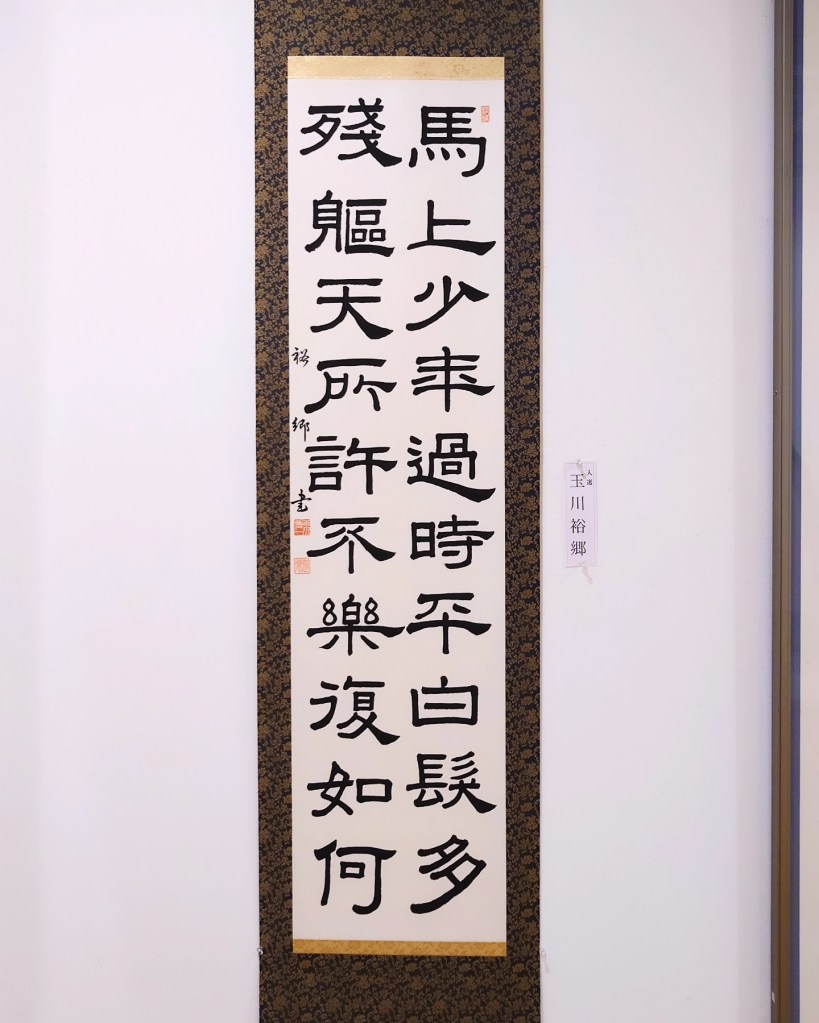 馬上少年過時平白髮多
殘軀天所許不樂復如何
裕郷書
入選
玉川裕郷